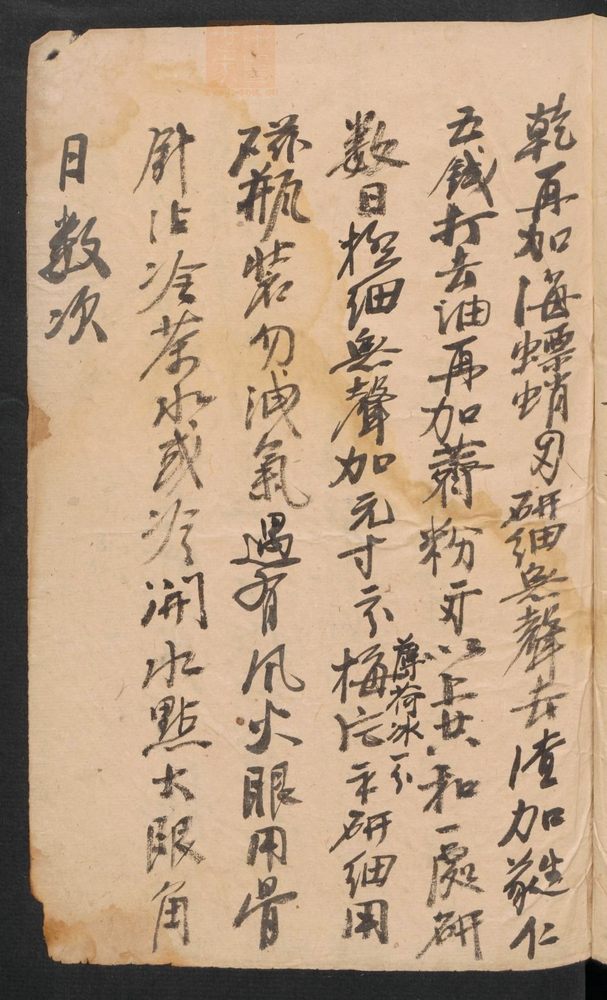 乾再加海螵蛸刄研細無聲去渣加蕤仁
五錢打去油再加薺粉以上共和一處研
数日極細無聲加元寸梅片研細用
薄荷冰一分
磁瓶装勿洩氣遇有风火眼用骨
針沾冷茶水或冷開水點大眼角
日数次